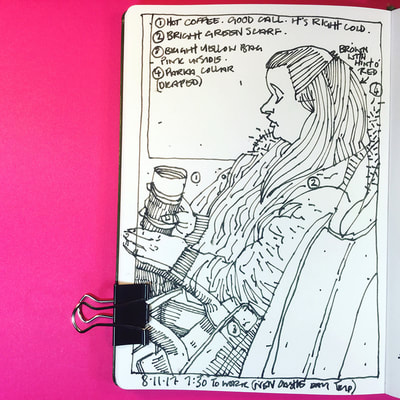 ① HOT COFFEE. GOOD CALL. IT'S RIGHT COLD.
② BRIGHT GREEN SCARF.
③ BRIGHT YELLOW BAG
PINK INSIDE.
④ PARKA COLLAR
(DRAPED)
BROWN
WITH
HINT O'
RED
④
①
②
③
8.11.17 7:30 TO WORK